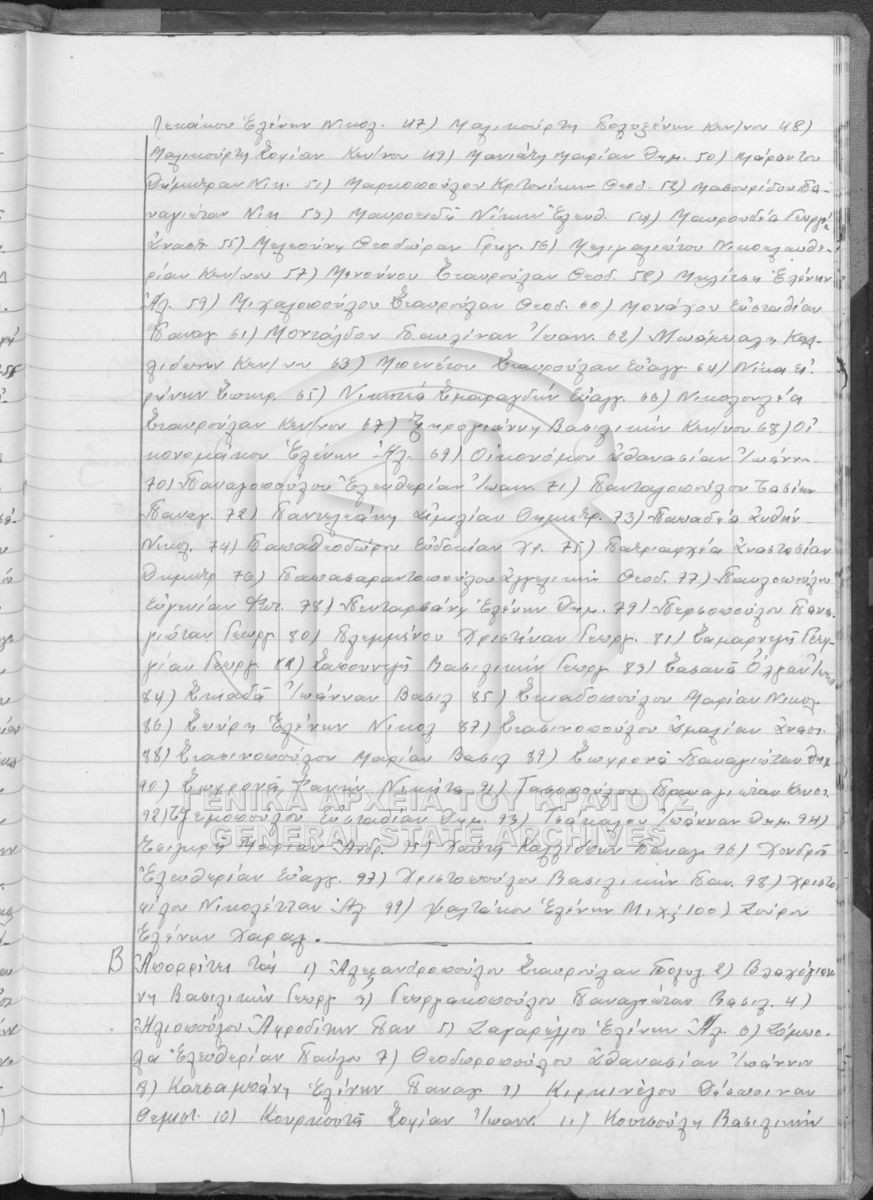 Λεκάκου Ἑλένην Νικολ. 47) Μαλικούρτη Πολυξένην Κων/νου 48)
Μαλικούρτη Σοφίαν Κων/νου 49) Μανιάτη Μαρίαν Δημ. 50) Μαράντου
Δήμητραν Νικ. 51) Μαρκοπούλου Κρτονίκην Θεοδ. 52) Μασουρίδου Πα-
ναγιώταν Νικ 53) Μαυροειδῆ Νίκην Ἐλευθ. 54) Μαυρουδέα Γεωργί
Ἀναστ. 55) Μελεούνη Θεοδώραν Γρηγ. 56) Μελιγαλιώτου Νικ ελευθε-
ρίαν Κων/νου 57) Μενούνου Σταυρούλαν Θεοδ. 58) Μηλίτση Ἑλένην
Ἀλ. 59) Μιχαλοπούλου Σταυρούλαν Θεοδ. 60) Μονάχου Εὐσταθίαν
Παναγ 61) Μοντάλδου Παυλίναν Ἰωάνν. 62) Μπάμπαλη Καλ-
λιόπην Κων/νου 63) Μπενέτου Σταυρούλαν Εὐαγγ. 64) Νίκα Εἰ-
ρήνην Σωτηρ. 65) Νικητέα Σμαραγδήν Εὐαγγ. 66) Νικολουλέα
Σταυρούλαν Κων/νου 67) Ξηρογιάννη Βασιλικήν Κων/νου 68) Οἰ
κονομάκου Ἑλένην Ἀλ. 69) Οἰκονόμου Ἀθανασίαν Ἰωάνν.
70) Παναγοπούλου Ἐλευθερίαν Ἰωαν. 71) Πανταζοπούλου Τασίαν
Παναγ. 72) Παντελεάκη Αἰμιλίαν Δημητρ. 73) Παπαδέα Ἀνθήν
Νικολ. 74) Παπαθεοδώρου Εὐδοκίαν Χρ. 75) Πατριαρχέα Ἀναστασίαν
Δημητρ 76) Παπασαραντοπούλου Ἀγγελικήν Θεοδ. 77) Παυλοπούλου
Εὐγενίαν Φωτ. 78) Πενταρβάνη Ἑλένην Δημ. 79) Περσοπούλου Πανα-
γιώταν Γεωργ 80) Πλεμμένου Χριστίναν Γεωργ. 81) Σαμαρνεζῆ Γεωρ-
γίαν Γεωργ. 82) Σαπουνεζῆ Βασιλικήν Γεωργ 83) Σασανᾶ Ὄλγαν Ἰω
84) Σκιαδᾶ Ἰωάνναν Βασιλ 85) Σκιαδοπούλου Μαρίαν Νικολ
86) Σπύρη Ἑλένην Νικολ 87) Στασινοπούλου Ἀμαλίαν Ἀναστ.
88) Στασινοπούλου Μαρίαν Βασιλ 89) Σωφρονᾶ Παναγιώταν Δημ
90) Σωφρονᾶ Φανήν Νικήτα 91) Τασοπούλου Παναγιώταν Κωνστ.
92) Τζεμοπούλου Εὐσταθίαν Δημ. 93) Τσάκαλου Ἰωάνναν Δημ. 94)
Τσιγκρη Μαρίαν Ἀνδρ. 95) Χαύτη Καλλιόπην Παναγ 96) Χονδροῦ
Ἐλευθερίαν Εὐαγγ. 97) Χριστοπούλου Βασιλικήν Παν. 98) Χριστο
φίλου Νικολέτταν Ἀλ 99) Ψαλτάκου Ἑλένην Μιχ. 100) Ζούρου
Ἑλένην Χαραλ.
Β Ἀπορρίπτει τάς 1) Ἀλεξανδροπούλου Σταυρούλαν Πολυζ. 2) Βλαχόγιαν
νη Βασιλικήν Γεωργ 3) Γεωργακοπούλου Παναγιώταν Βασιλ. 4)
Ἠλιοπούλου Ἀφροδίτην Παν 5) Ζαγαρέλλου Ἑλένην Ἀλ. 6) Ζόμπο-
λα Ἐλευθερίαν Παύλου 7) Θεοδωροπούλου Ἀθανασίαν Ἰωάννου
8) Κατσαμπάνη Ἑλένην Παναγ 9) Κιρκινέζου Δέσποιναν
Θεμιστ. 10) Κουρκουτᾶ Σοφίαν Ἰωάνν. 11) Κουτσούλη Βασιλικήν
ΓΕΝΙΚΑ ΑΡΧΕΙΑ ΤΟΥ ΚΡΑΤΟΥΣ
GENERAL STATE ARCHIVES